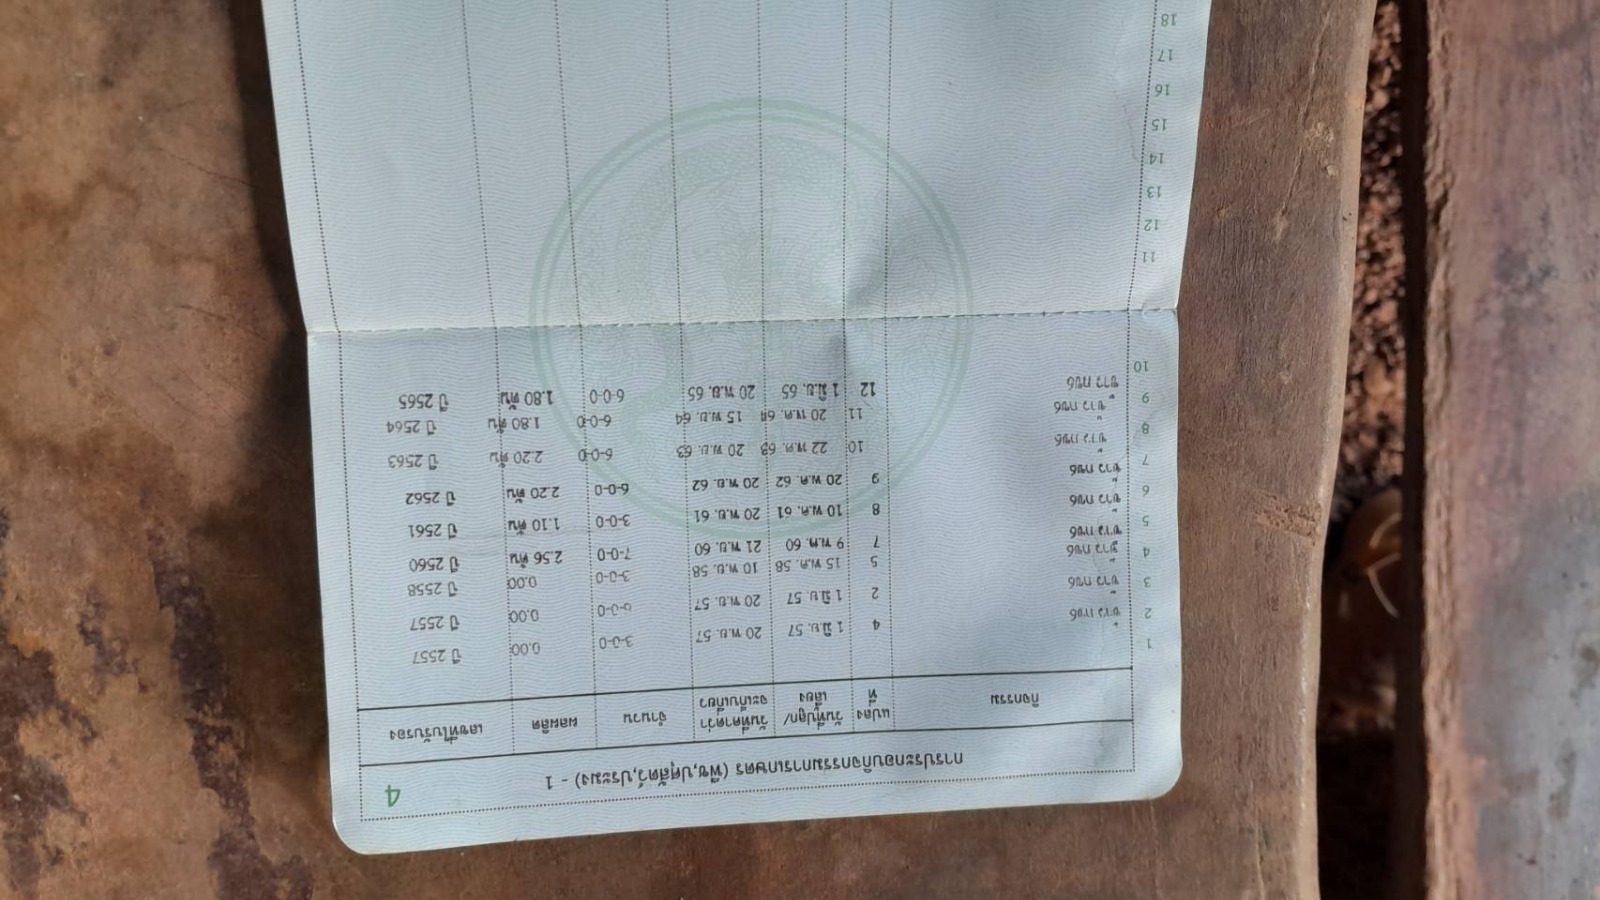 4
การประกอบกิจกรรมการเกษตร (พืช,ปศุสัตว์,ประมง) - 1
กิจกรรม แปลงที่ วันที่ปลูก/เลี้ยง วันที่คาดว่าจะเก็บเกี่ยว จำนวน ผลผลิต เลขที่ใบรับรอง
1 ข้าว กข6 4 1 มิ.ย. 57 20 พ.ย. 57 3-0-0 0.00 ปี 2557
2 ข้าว กข6 2 1 มิ.ย. 57 20 พ.ย. 57 0.00 ปี 2557
3 ข้าว กข6 5 15 พ.ค. 58 10 พ.ย. 58 3-0-0 0.00 ปี 2558
4 ข้าว กข6 7 9 พ.ค. 60 21 พ.ย. 60 7-0-0 2.56 ตัน ปี 2560
5 ข้าว กข6 8 10 พ.ค. 61 20 พ.ย. 61 3-0-0 1.10 ตัน ปี 2561
6 ข้าว กข6 9 20 พ.ค. 62 20 พ.ย. 62 6-0-0 2.20 ตัน ปี 2562
7 ข้าว กข6 10 22 พ.ค. 63 20 พ.ย. 63 6-0-0 2.20 ตัน ปี 2563
8 ข้าว กข6 11 20 พ.ค. 64 15 พ.ย. 64 6-0-0 1.80 ตัน ปี 2564
9 ข้าว กข6 12 1 มิ.ย. 65 20 พ.ย. 65 6-0-0 1.80 ตัน ปี 2565
10
11
12
13
14
15
16
17
18